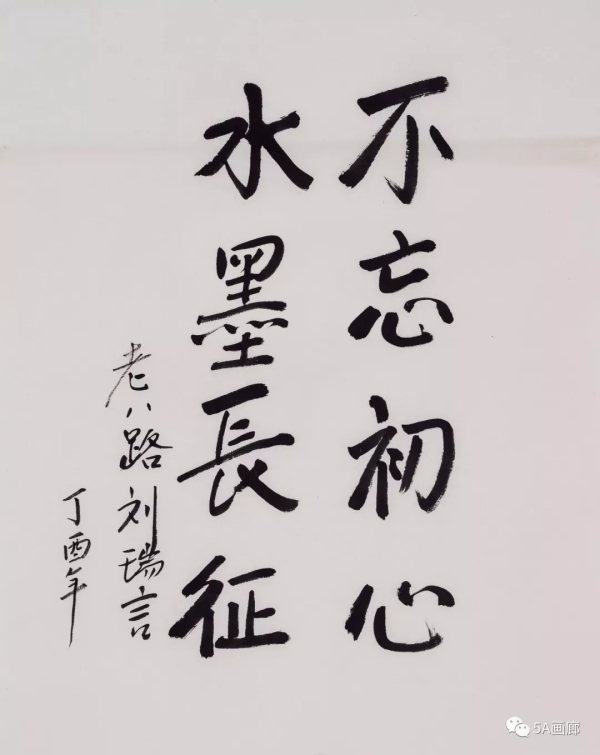 不忘初心
水墨長征
老八路刘瑞言
丁酉年
5A画廊